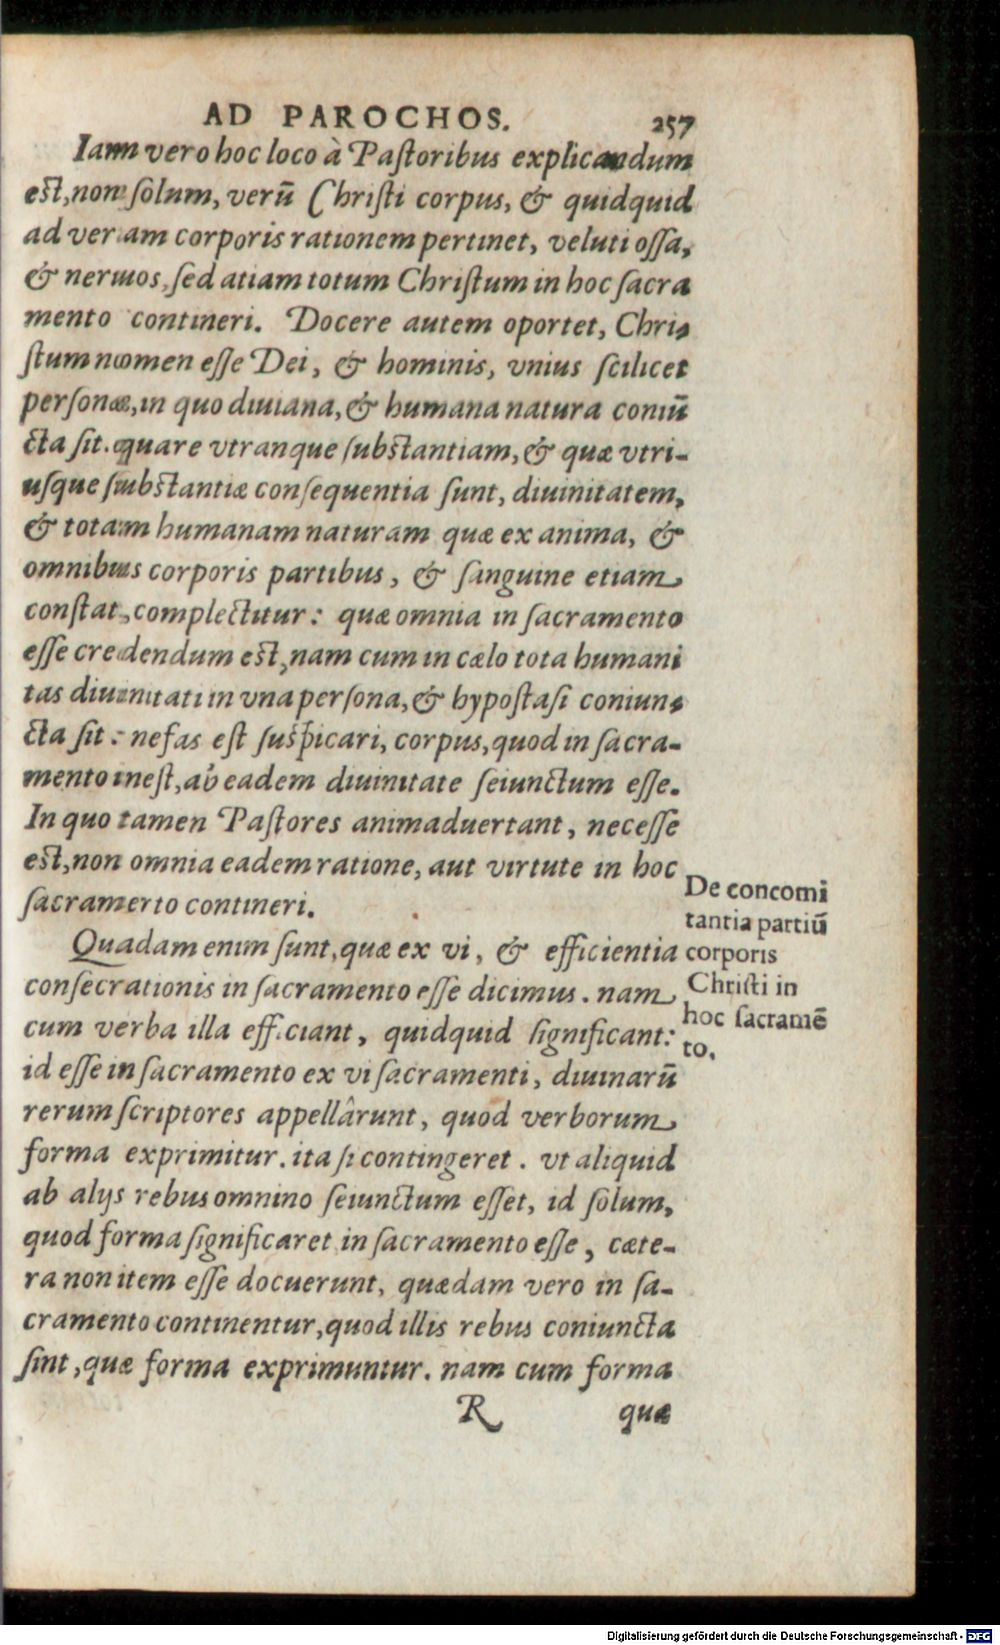 AD PAROCHOS. 257
Iam vero hoc loco à Paſtoribus explicandum
eſt, non ſolum, verũ Chriſti corpus, & quidquid
ad veram corporis rationem pertinet, veluti oſſa,
& neruos, ſed atiam totum Chriſtum in hoc ſacra
mento contineri. Docere autem oportet, Chri-
ſtum nomen eſſe Dei, & hominis, vnius ſcilicet
perſonæ, in quo diuiana, & humana natura coniũ
cta ſit. quare vtranque ſubſtantiam, & quæ vtri-
uſque ſubſtantiæ conſequentia ſunt, diuinitatem,
& totam humanam naturam quæ ex anima, &
omnibus corporis partibus, & ſanguine etiam
conſtat, complectitur: quæ omnia in ſacramento
eſſe credendum eſt, nam cum in cælo tota humani
tas diuinitati in vna perſona, & hypoſtaſi coniun-
cta ſit: nefas eſt ſuſpicari, corpus, quod in ſacra-
mento ineſt, ab eadem diuinitate ſeiunctum eſſe.
In quo tamen Paſtores animaduertant, neceſſe
eſt, non omnia eadem ratione, aut virtute in hoc
ſacramerto contineri.
Quadam enim ſunt, quæ ex vi, & efficientia
conſecrationis in ſacramento eſſe dicimus. nam
cum verba illa efficiant, quidquid ſignificant:
id eſſe in ſacramento ex vi ſacramenti, diuinarũ
rerum ſcriptores appellârunt, quod verborum
forma exprimitur. ita ſi contingeret. vt aliquid
ab alijs rebus omnino ſeiunctum eſſet, id ſolum,
quod forma ſignificaret in ſacramento eſſe, cæte-
ra non item eſſe docuerunt, quædam vero in ſa-
cramento continentur, quod illis rebus coniuncta
ſint, quæ forma exprimuntur. nam cum forma
R quæ
De concomi
tantia partiũ
corporis
Chriſti in
hoc ſacramẽ
to.
Digitalisierung gefördert durch die Deutsche Forschungsgemeinschaft - DFG